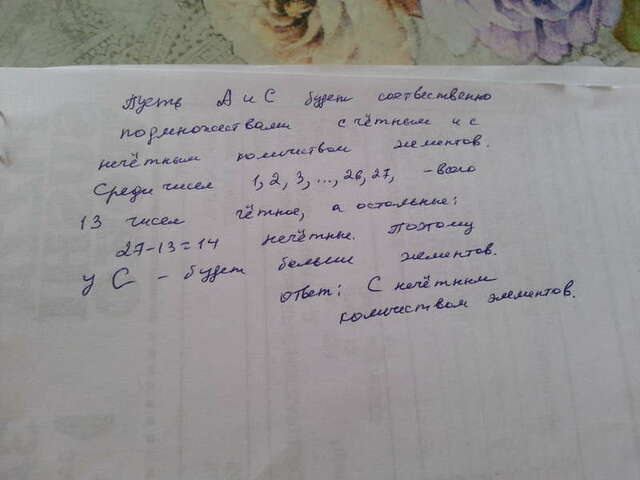 Пусть А и С будет соотвественно
подмножествами с чётным и с
нечётным количеством элементов.
Среди чисел 1, 2, 3, ..., 26, 27, - всего
13 чисел чётное, а остальные:
27-13=14 нечётные. Поэтому
у С - будет больше элементов.
ответ: С нечётным
количеством элементов.